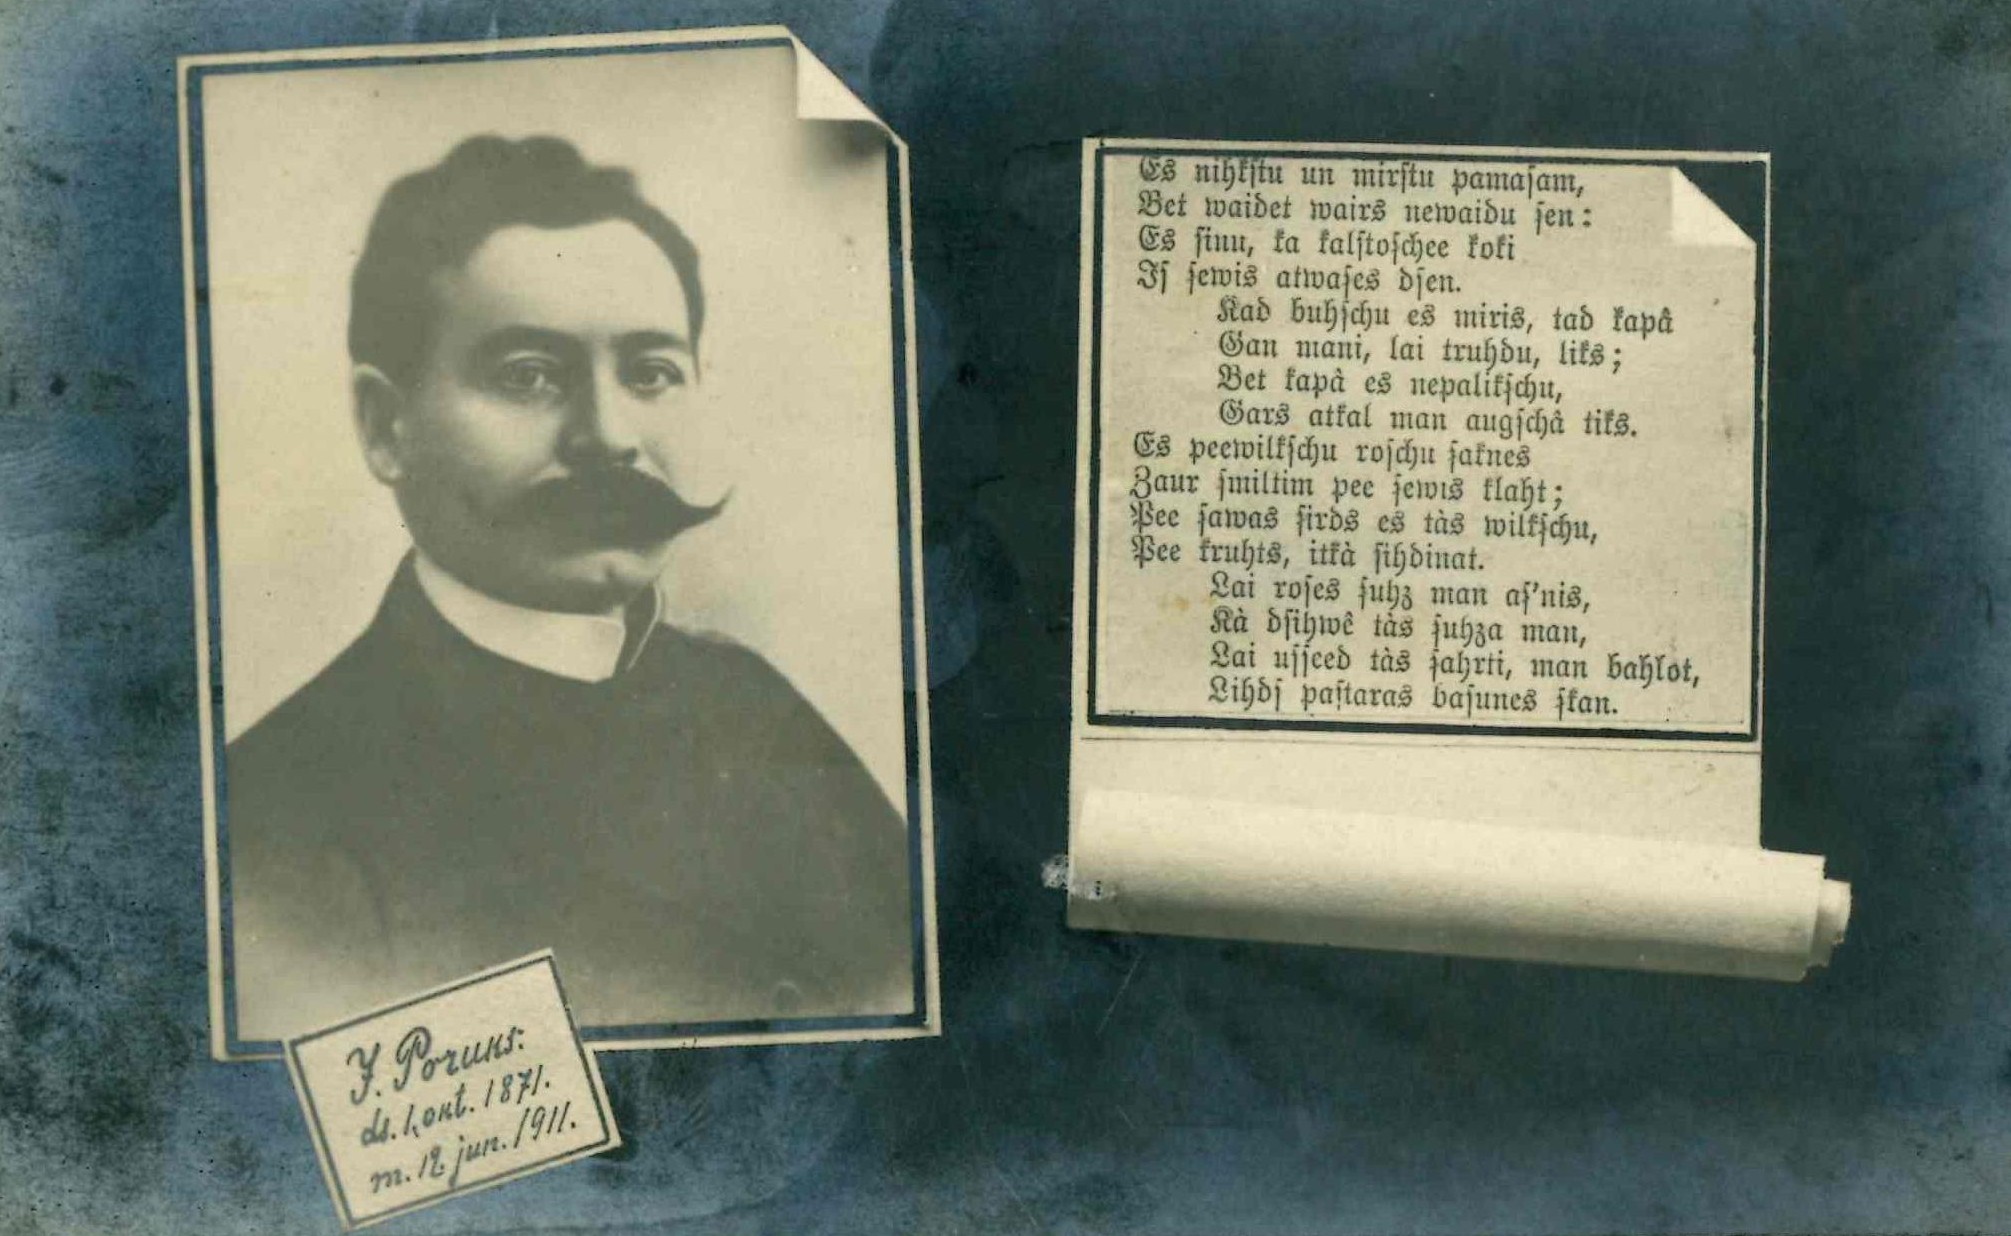 J. Poruks.
ds. 1. okt. 1871.
m. 12. jun. 1911.
Es nihkſtu un mirſtu pamaſam,
Bet waidet wairs newaidu ſen:
Es ſinu, ka kalſtoſchee koki
Iſ ſewis atwaſes dſen.
Kad buhſchu es miris, tad kapâ
Gan mani, lai truhdu, liks;
Bet kapà es nepalikſchu,
Gars atkal man augſchâ tiks.
Es peewilkſchu roſchu ſaknes
Zaur ſmiltim pee ſewis klaht;
Pee ſawas ſirds es tàs wilkſchu,
Pee kruhts, itkà ſihdinat.
Lai roſes ſuhz man aſ'nis,
Kà dſihwê tàs ſuhza man,
Lai uſſeed tàs ſahrti, man bahlot,
Lihdſ paſtaras baſunes ſkan.